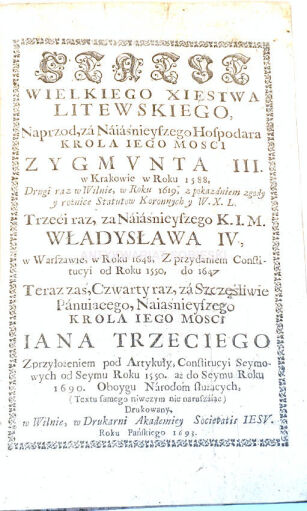 STATUT
WIELKIEGO XIĘSTWA
LITEWSKIEGO,
Naprzod, zá Náiáśnieyszego Hospodara
KROLA IEGO MOSCI
ZYGMVNTA III.
w Krakowie w Roku 1588,
Drugi raz w Wilnie, w Roku 1619, z pokazániem zgody
y rożnice Statutow Koronnych y W. X. L.
Trzeci raz, za Náiáśnieyszego K. I. M.
WŁADYSŁAWA IV,
w Warszawie, w Roku 1648, Z przydaniem Consti-
tucyi od Roku 1550, do 1647
Teraz zás, Czwarty raz, zá Szczęśliwie
Pánuiącego, Naiaśnieyszego
KROLA IEGO MOSCI
IANA TRZECIEGO
Z przyłożeniem pod Artykuły, Constitucyi Seymo-
wych od Seymu Roku 1550. aż do Seymu Roku
1690. Oboygu Narodom służących,
( Textu samego niwczym nie naruszáiąc )
Drukowany,
w Wilnie, w Drukarni Akademiey Societatis IESV.
Roku Páńskiego 1693.